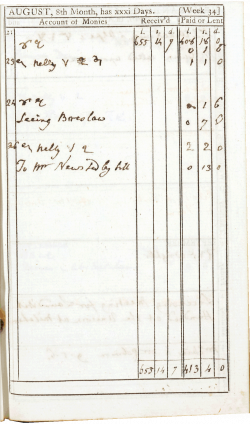 AUGUST, 8th Month, has xxxi Days. [Week 34]
Account of Monies Receiv'd Paid or Lent
l. s. d. l. s. d.
21 655 14 7 408 18 0
0 1 6
23 Nelly 1 1 0
24 0 1 6
Seeing Breslaw 0 7 5
26 Nelly 2 2 0
To Mr Newsted by bill 0 13 0
655 14 7 413 4 0